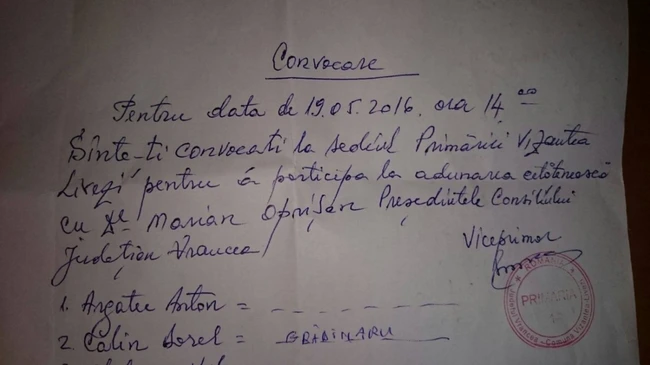 Convocare
Pentru data de 19.05.2016. ora 14 00
Sînte-ti convocati la sediul Primăriei Vizantea
Livezi pentru a participa la adunarea cetătenească
cu Dl Marian Oprișan Președintele Consiliului
Județian Vrancea
Viceprimar
ROMANIA
PRIMĂRIA
1. Argatu Anton =
2. Calin Sorel = GRĂDINARU